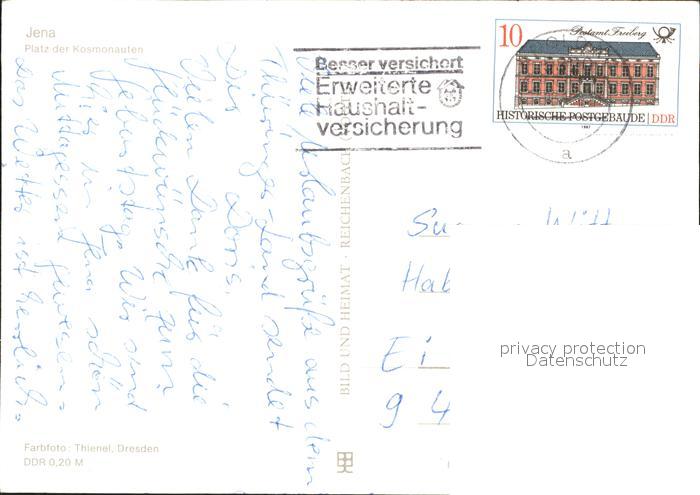 Jena
Platz der Kosmonauten
Besser versichert
Erweiterte
Haushalt-
versicherung
10
Postamt Freiberg
HISTORISCHE POSTGEBÄUDE DDR
1987
a
Viele Urlaubsgrüße aus dem
Thüringer-Land sendet
Dir Doris.
Vielen Dank für die
Glückwünsche zum
Geburtstag. Wir sind
hier in Jena schön
Mittagessen gewesen.
Das Wetter ist herrlich.
BILD UND HEIMAT · REICHENBACH
Hab
Ei
9 4
privacy protection
Datenschutz
Farbfoto: Thienel, Dresden
DDR 0,20 M